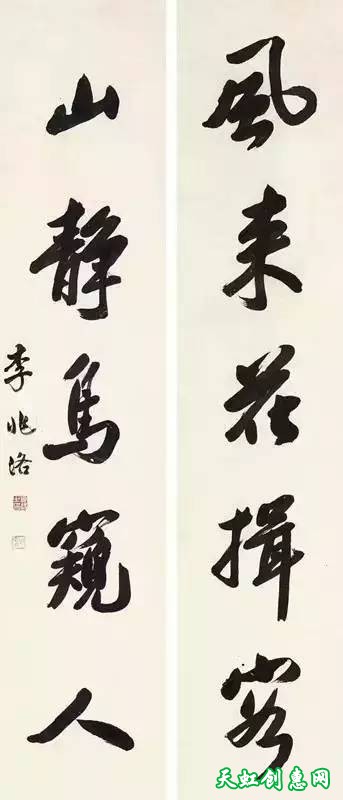 風来花揖客
山静鳥窺人
李兆洛
天虹创惠网